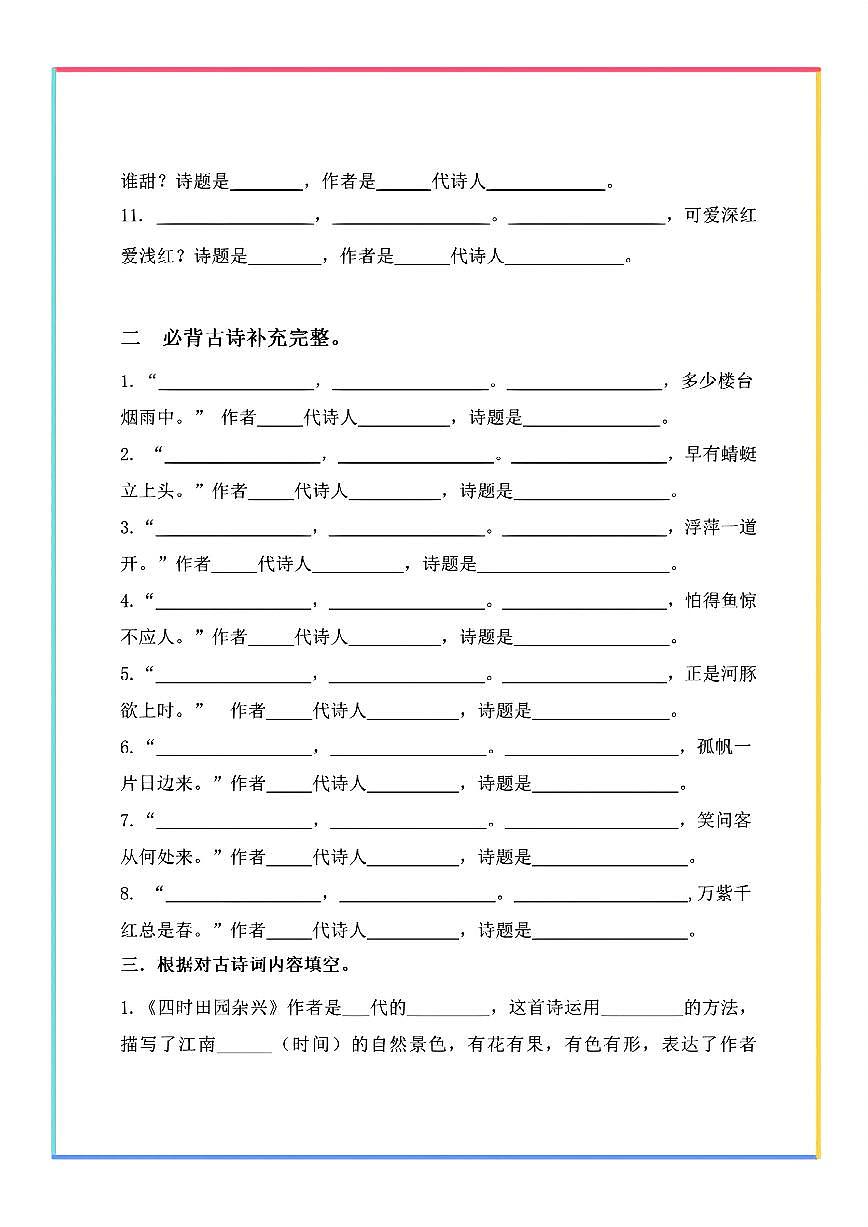 谁甜？诗题是________，作者是______代诗人_____________。
11. _________________，_________________。_________________，可爱深红
爱浅红？诗题是________，作者是______代诗人_____________。
二 必背古诗补充完整。
1. “_________________，_________________。_________________，多少楼台
烟雨中。” 作者_____代诗人__________，诗题是_______________。
2. “_________________，_________________。_________________，早有蜻蜓
立上头。”作者_____代诗人__________，诗题是_________________。
3. “_________________，_________________。__________________，浮萍一道
开。”作者_____代诗人__________，诗题是_____________________。
4. “_________________，_________________。__________________，怕得鱼惊
不应人。”作者_____代诗人__________，诗题是_________________。
5. “_________________，_________________。__________________，正是河豚
欲上时。” 作者_____代诗人__________，诗题是_______________。
6. “_________________，_________________。___________________，孤帆一
片日边来。”作者_____代诗人__________，诗题是________________。
7. “_________________，_________________。___________________，笑问客
从何处来。”作者_____代诗人__________，诗题是_________________。
8. “_________________，_________________。___________________,万紫千
红总是春。”作者_____代诗人__________，诗题是_________________。
三．根据对古诗词内容填空。
1.《四时田园杂兴》作者是___代的_________，这首诗运用_________的方法，
描写了江南______（时间）的自然景色，有花有果，有色有形，表达了作者